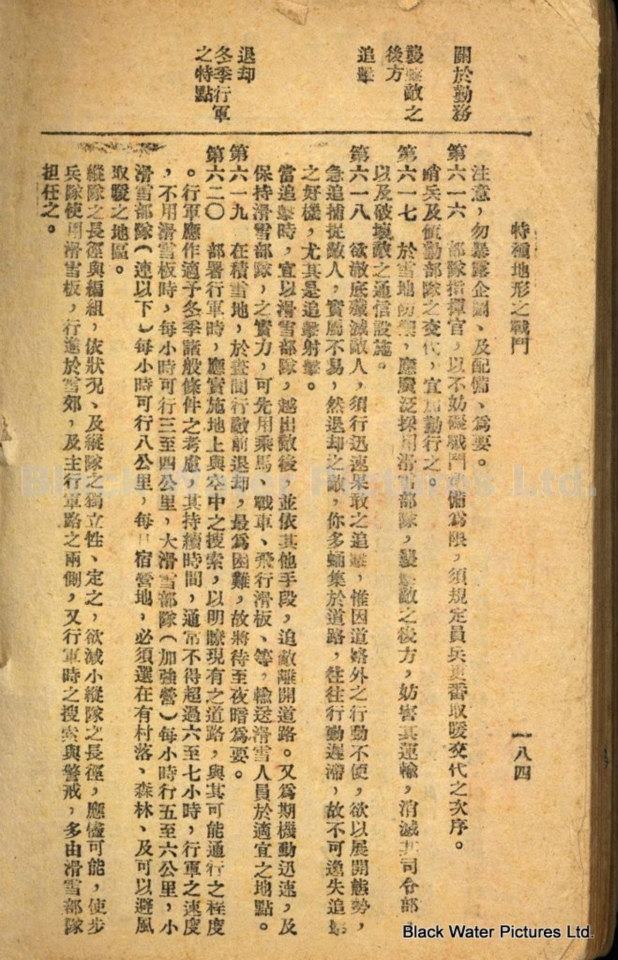 特種地形之戰鬥
一八四
關於勤務
襲擊敵之
後方
追擊
退却
冬季行軍
之特點
注意，勿暴露企圖、及配備、爲要。
第六一六　部隊指揮官，以不妨礙戰鬥準備爲限，須規定員兵更番取暖交代之次序。
哨兵及偵勤部隊之交代，宜加勤行之。
第六一七　於雪地防禦，應廣泛採用滑雪部隊，襲擊敵之後方，妨害其運輸，消滅其司令部
以及破壞敵之通信設施。
第六一八　欲澈底殲滅敵人，須行迅速果敢之追擊，惟因道路外之行動不便，欲以展開態勢，
急追捕捉敵人，實屬不易，然退却之敵，你多蝟集於道路，往往行動遲滯，故不可逸失追擊
之好機，尤其是追擊射擊。
當追擊時，宜以滑雪部隊，越出敵後，並依其他手段，追敵離開道路。又爲期機動迅速，及
保持滑雪部隊，之實力，可先用乘馬、戰車、飛行滑板、等，輸送滑雪人員於適宜之地點。
第六一九　在積雪地，於晝間行敵前退却，最爲困難，故將待至夜暗爲要。
第六二〇　部署行軍時，應實施地上與空中之搜索，以明瞭現有之道路，與其可能通行之程度
。行軍應作適予冬季諸般條件之考慮，其持續時間，通常不得超過六至七小時，行軍之速度
，不用滑雪板時，每小時可行三至四公里，大滑雪部隊（加強營）每小時行五至六公里，小
滑雪部隊（連以下）每小時可行八公里，每日宿營地，必須選在有村落、森林、及可以避風
取暖之地區。
縱隊之長徑與編組，依狀況、及縱隊之獨立性、定之，欲減小縱隊之長徑，應儘可能，使步
兵隊使用滑雪板，行進於雪郊，及主行軍路之兩側，又行軍時之搜索與警戒，多由滑雪部隊
担任之。
Black Water Pictures Ltd.
Black Water Pictures Ltd.